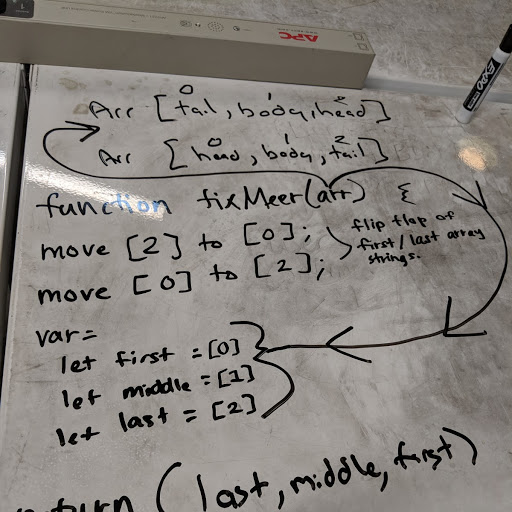 APC
EXPO
0 1 2
Arr [tail, body, head]
0 1 2
Arr [head, body, tail]
function fixMeer(arr) {
move [2] to [0];
move [0] to [2];
flip flap of
first/last array
strings.
var=
let first = [0]
let middle = [1]
let last = [2]
return (last, middle, first)